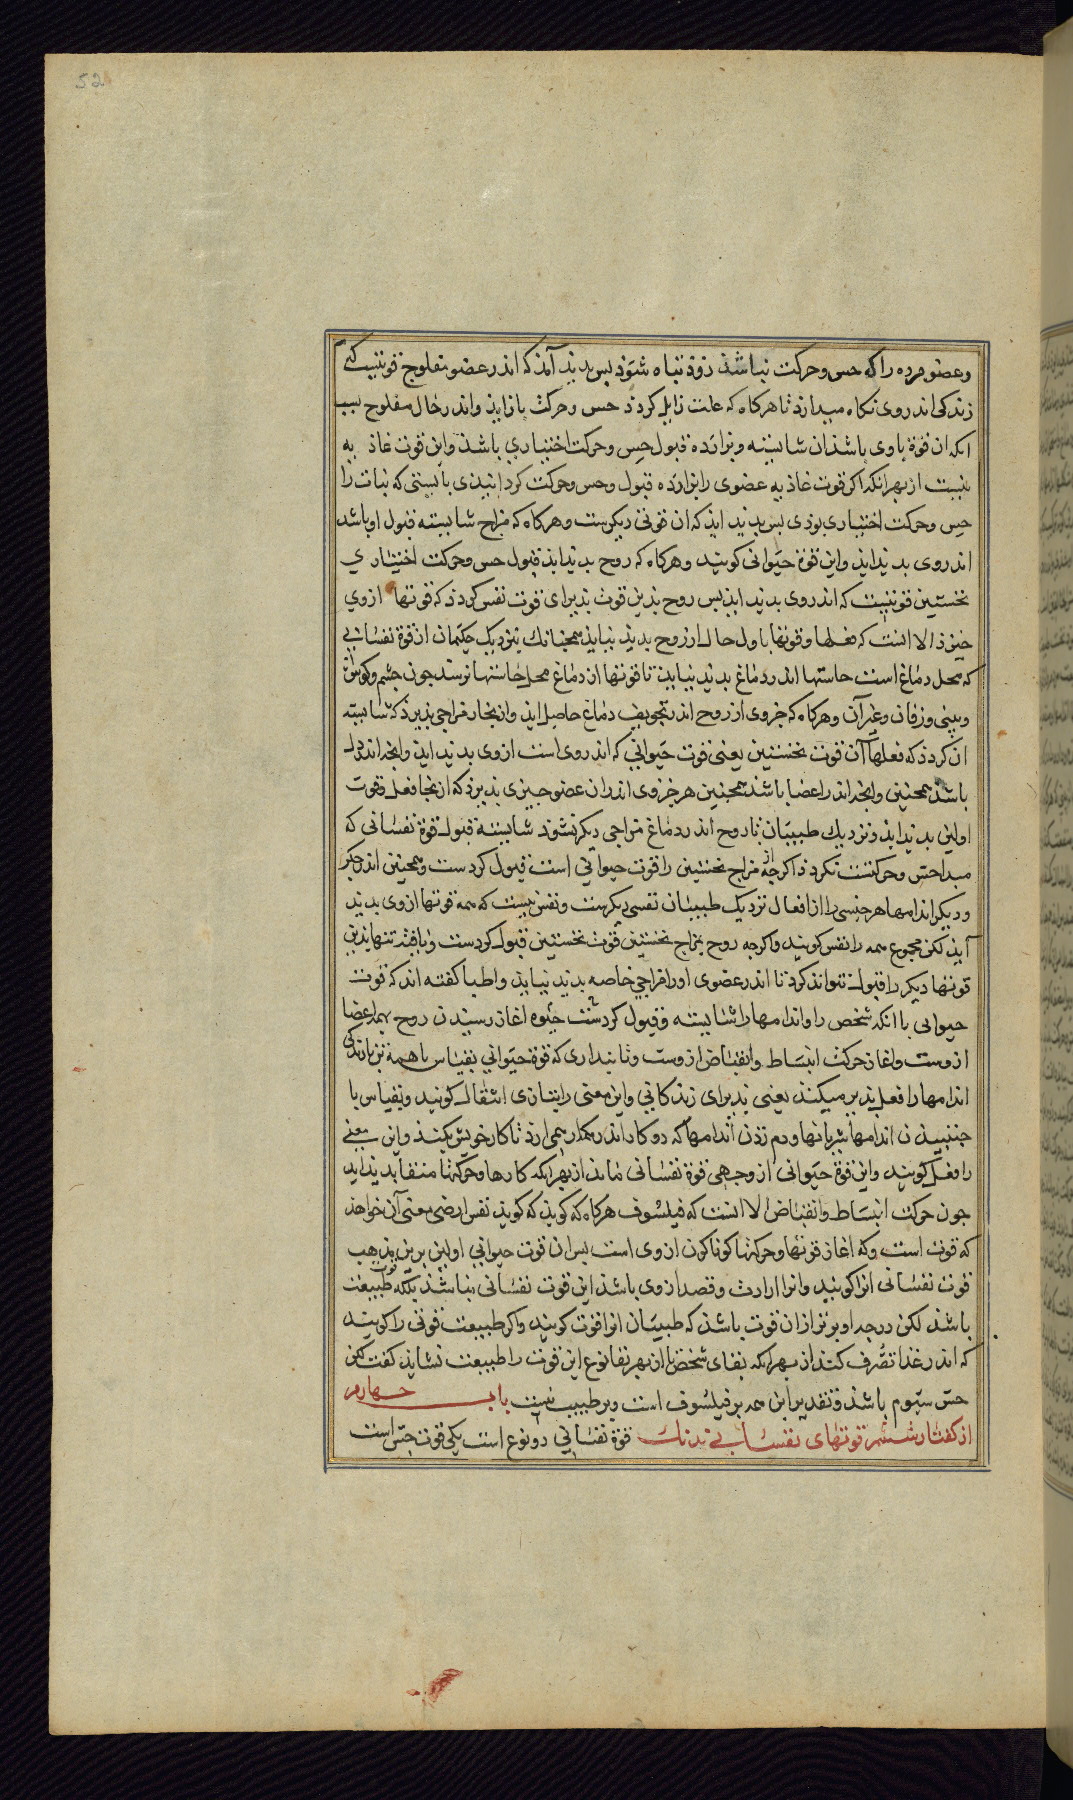 52
وعضو مرده را که حس وحرکت نباشد زود تباه شود پس بدید آمد که اندر عضو مفلوج قوتیست کی
زندکی اندر وی نکاه میدارد تا هرکاه که علت زایل کردد حس وحرکت باز اید واندر حال مفلوج بسبب
انکه ان قوة باوی باشد ان شایسته وبرارده قبول حس وحرکت اختیاری باشد واین قوت غاذیه
نیست از بهر انکه اکر قوت غاذیه عضوی را برارده قبول وحس وحرکت کردانیدی بایستی که نبات را
حس وحرکت اختیاری بودی پس بدید اید که ان قوتی دیکرست وهرکاه که مزاج شایسته قبول او باشد
اندر وی بدید اید واین قوة حیوانی کویند وهرکاه که روح بدید اید قبول حس وحرکت اختیاری
نخستین قوتیست که اندر وی بدید اید پس روح بدین قوت پذیرای قوت نفس کردد که قوتها ازوی
خیزد الا انست که فعلها وقوتها باول حال از روح بدید نیاید همجنانک بنزدیک حکیمان از قوة نفسانی
که محل دماغ است حاستها اندر دماغ بدید نیاید تا قوتها از دماغ محل حاستها نرسد جون جشم وکوش
وبینی وزفان وغیر آن وهرکاه که جزوی از روح اندر تجویف دماغ حاصل اید وان بخار مزاجی پذیرد که شایسته
ان کردد که فعلها آن قوت نخستین یعنی قوت حیوانی که اندر وی است ازوی بدید اید وانجه اندر دل
باشد همجنین وانجه اندر اعضا باشد همجنین هر جزوی اندران عضو جیزی پذیرد که از انجا فعل وقوت
اولین بدید اید ونزدیک طبیبان تا روح اندر دماغ مزاجی دیکر نشود شایسته قبول قوة نفسانی که
مبدا حس وحرکتست نکردد اکرجه از مزاج نخستین را قوت حیوانی است قبول کردست وهمجنین اندر جکر
ودیکر اندامها هر جنسی را از افعال نزدیک طبیبان نفسی دیکرست ونفس نیست که همه قوتها ازوی بدید
آید لکن مجموع همه را نفس کویند واکرجه روح بمزاج نخستین قوت نخستین قبول کردست ویافته تنها بدین
قوتها دیکر را قبول نتواند کرد تا اندر عضوی اورا مزاجی خاصه بدید نیاید واطبا کفته اند که قوت
حیوانی با انکه شخص را واندامها را شایسته وقبول کردنست حیوه اغاز رسیدن روح بهمه اعضا
ازوست واغاز حرکت انبساط وانقباض ازوست وتا بنداری که قوة حیوانی بقیاس با همه تن با زندکی
اندامها را فعل پذیر میکند یعنی پذیرای زندکانی واین معنی را بتازی انفعال کویند وبقیاس با
جنبیدن اندامها شریانها ودم زدن اندامها که دو کار اندر همکار همی ارد تا کار خویش بکند واین معنی
را فعل کویند واین قوة حیوانی از وجهی قوة نفسانی ماند از بهر انکه کارها وحرکتها متفاید بدید اید
جون حرکت انبساط وانقباض الا انست که فیلسوف هرکاه که کوید که کوید نفس ارضی معنی آن خواهذ
که قوت است وکه اغاز قوتها وحرکتها کوناکون ازوی است پس ان قوت حیوانی اولین برین مذهب
قوت نفسانی انرا کویند وانرا ارادت وقصد ازوی باشد این قوت نفسانی نباشد بلکه قوت طبیعت
باشد لکن درجه او برتر از ان قوت باشد که طبیبان انرا قوت کویند واکر طبیعت قوتی را کویند
که اندر غذا تصرف کند از بهر انکه بقای شخص یا از بهر بقا نوع این قوت را طبیعت نشاید کفت لکن
حس سیوم باشد وتقدیر این همه بر فیلسوف است وبر طبیب نیست باب جهارم
از کفتار ششم قوتهای نفسانی بدنک قوة نفسانی دو نوع است یکی قوت حس است